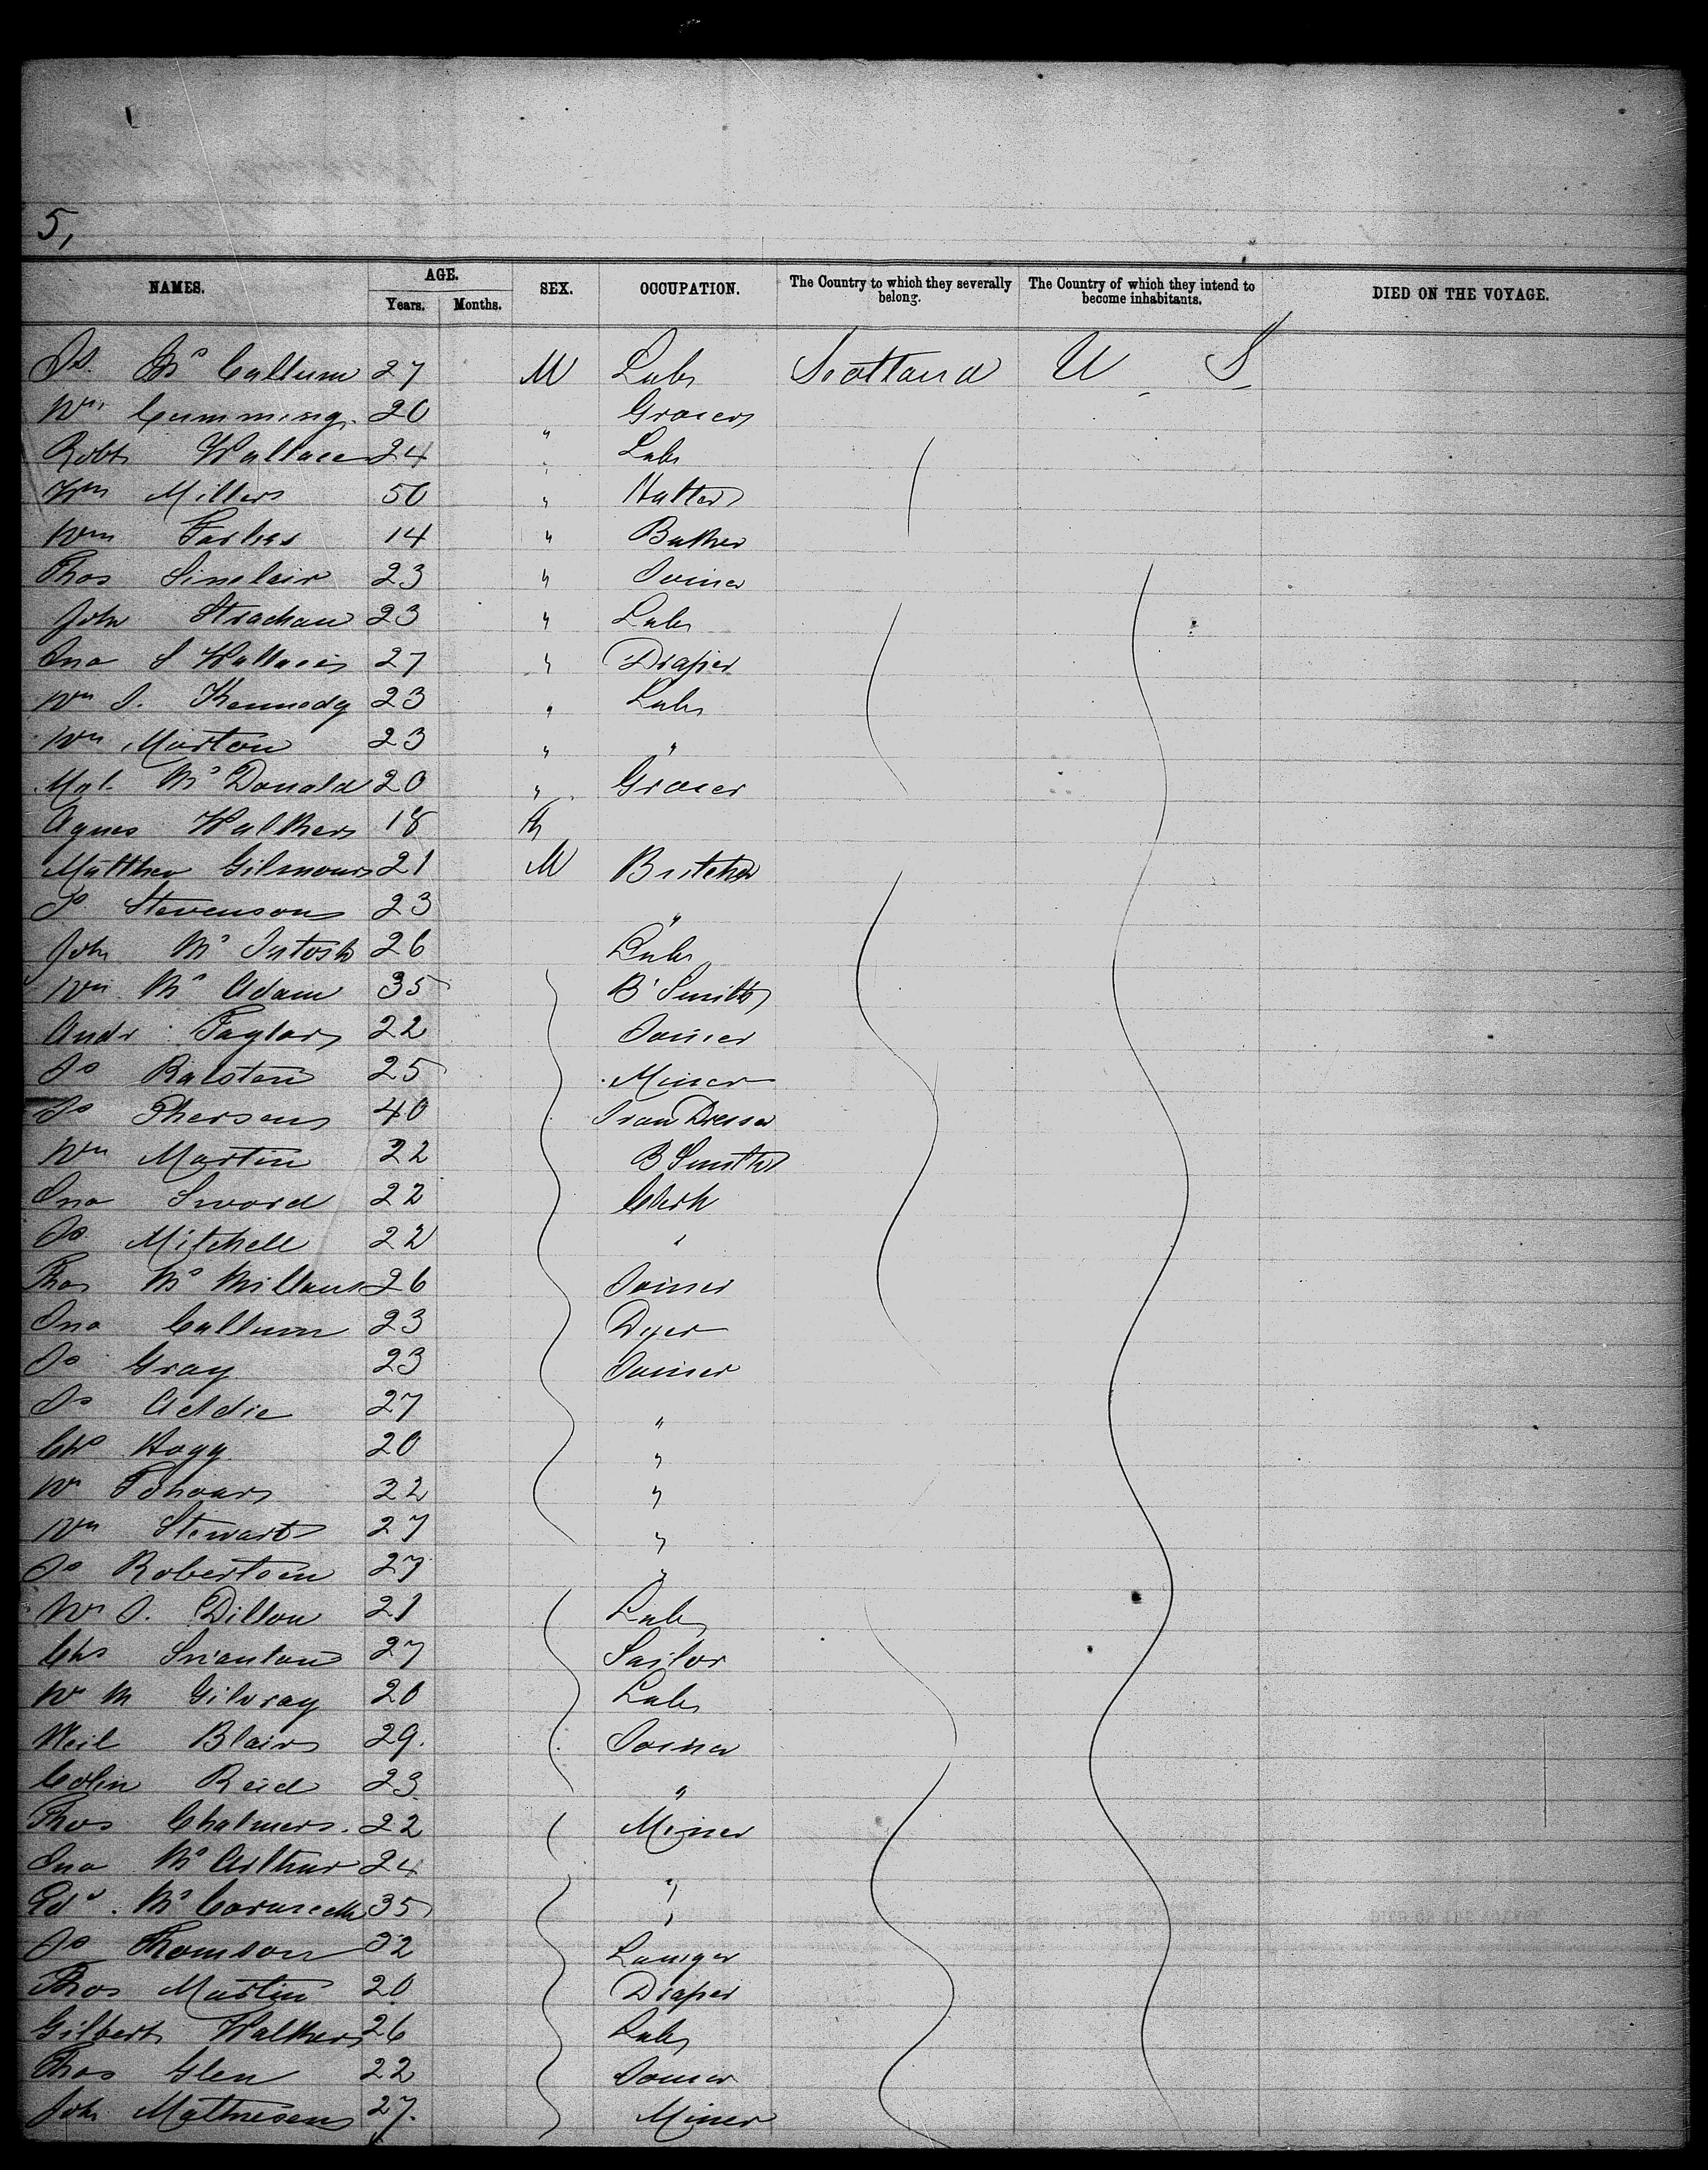 5,
NAMES. AGE. SEX. OCCUPATION. The Country to which they severally belong. The Country of which they intend to become inhabitants. DIED ON THE VOYAGE.
Years. Months.
Mc Callum 27 M Labr Scotland U S
Wm Cumming. 20 " Grocer
Robt Wallace 24 " Labr
Wm Miller 50 " Hatter
Wm Forbes 14 " Baker
Thos Sinclair 23 " Joiner
John Strachan 23 " Labr
Jno S Wallace 27 " Draper
Wm J. Kennedy 23 " Labr
Wm Morton 23 " "
Mc Donald 20 " Grocer
Agnes Walker 18
Matthew Gilmour 21 M Butcher
Js Stevenson 23 "
John Mc Intosh 26 Labr
Wm Mc Adam 35 B' Smith
Andr Taylor 22 Joiner
Js Ralston 25 Miner
Js 40 Iron Dresser
Wm Martin 22 B Smith
Jno Sword 22 Clerk
Js Mitchell 22 "
Thos Mc Millan 26 Joiner
Jno Callum 23 Dyer
Js Gray 23 Joiner
Js Addie 27 "
Chs Hogg. 20 "
Wm 22 "
Wm Stewart 27 "
Js Robertson 27 "
Wm J. Dillon 21 Labr
Chs 27 Sailor
Wm M Gilvray 20 Labr
Neil Blair 29. Joiner
Colin Reid 23 "
Thos Chalmers. 22 Miner
Jno Mc Arthur 24 "
Edd. Mc 35 "
Js Thomson 32
Thos Martin 20 Draper
Gilbert Walker 26 Labr
Thos Glen 22 Joiner
John Mathieson 27. Miner